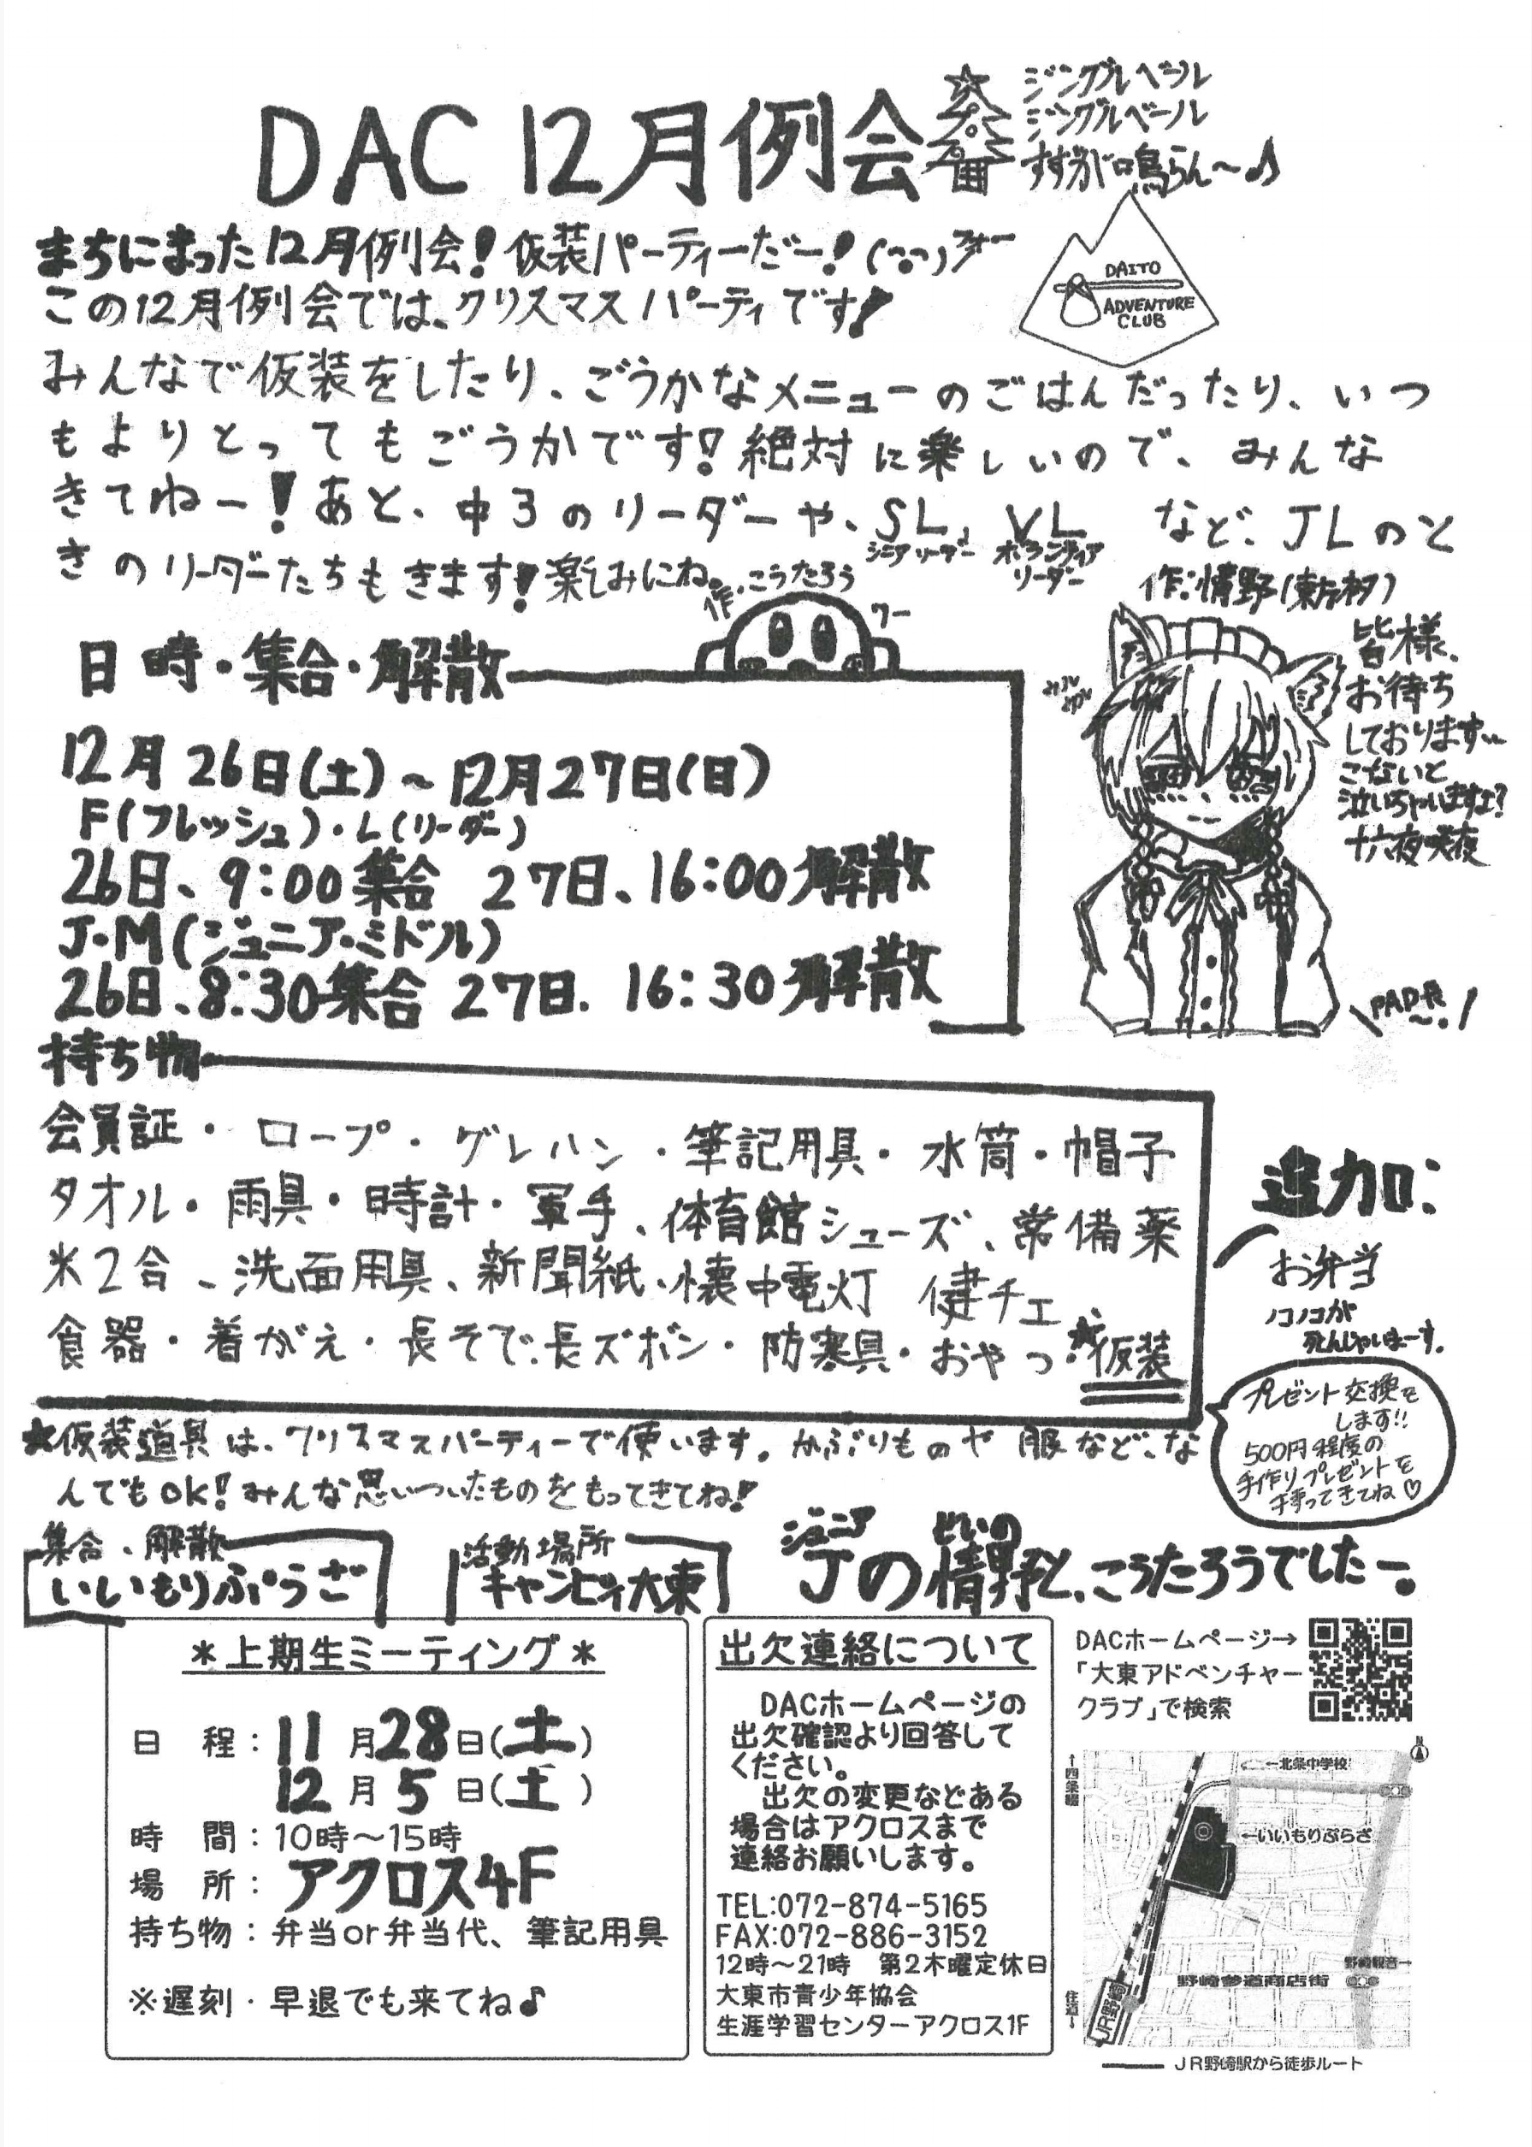 DAC 12月例会
ジングルベール
ジングルベール
すずが鳴らん〜♪
DAITO
ADVENTURE
CLUB
まちにまった12月例会!仮装パーティーだー!
この12月例会では、クリスマスパーティです!
みんなで仮装をしたり、ごうかなメニューのごはんだったり、いつ
もよりとってもごうかです!絶対に楽しいので、みんな
きてねー!あと、中3のリーダーや、SL、VL など、JLのと
シニアリーダー ボランティアリーダー
きのリーダーたちもきます!楽しみにね。
作.こうたろう
ワー
作:情野(東方ネタ)
皆様、
お待ち
しております…
こないと
泣いちゃいますよ?
十六夜咲夜
日時・集合・解散
12月26日(土)〜12月27日(日)
F(フレッシュ)・L(リーダー)
26日、9:00集合 27日、16:00解散
J・M(ジュニア・ミドル)
26日、8:30集合 27日、16:30解散
持ち物
会員証・ロープ・グレハン・筆記用具・水筒・帽子
タオル・雨具・時計・軍手、体育館シューズ、常備薬
米2合、洗面用具、新聞紙、懐中電灯 健チェ
食器・着がえ・長そで、長ズボン・防寒具・おやつ・★仮装
追加:
お弁当
ノコノコが
死んじゃいまーす。
プレゼント交換を
します!!
500円程度の
手作りプレゼントを
持ってきてね♡
★仮装道具は、クリスマスパーティーで使います。かぶりものや服など、な
んでもOK!みんな思いついたものをもってきてね!
集合、解散
いいもりぷらざ
活動場所
キャンピィ大東
ジュニア せいの
Jの情野と、こうたろうでしたー。
*上期生ミーティング*
日 程:11月28日(土)
12月5日(土)
時 間:10時〜15時
場 所:アクロス4F
持ち物:弁当or弁当代、筆記用具
※遅刻・早退でも来てね♪
出欠連絡について
DACホームページの
出欠確認より回答して
ください。
出欠の変更などある
場合はアクロスまで
連絡お願いします。
TEL:072-874-5165
FAX:072-886-3152
12時〜21時 第2木曜定休日
大東市青少年協会
生涯学習センターアクロス1F
DACホームページ→
「大東アドベンチャー
クラブ」で検索
N
↑四条畷
←北条中学校
←いいもりぷらざ
野崎観音→
野崎参道商店街
住道↓
JR野崎
JR野崎駅から徒歩ルート